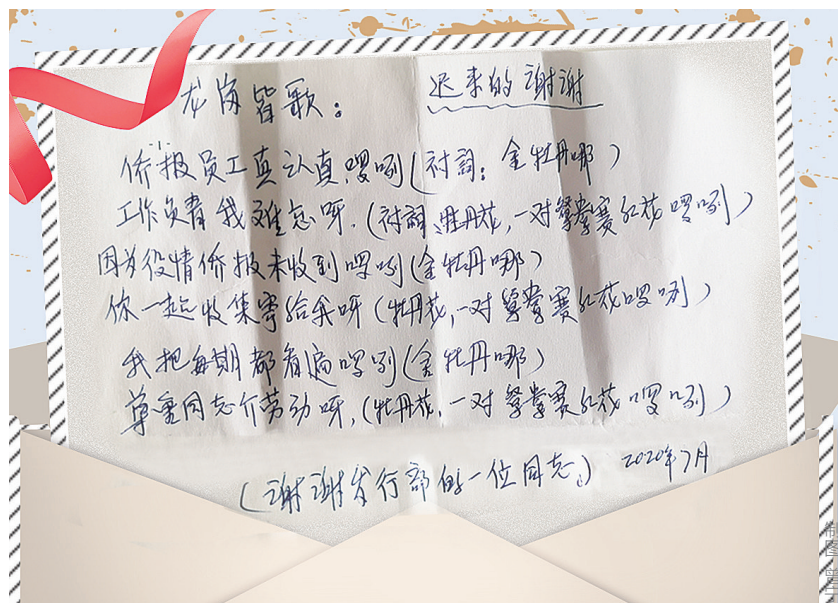 龙岗皆歌： 迟来的谢谢
侨报员工真认真啰咧(衬詞：金牡丹哪)
工作负责我难忘呀.(衬詞、牡丹花,一对鸳鸯赛红花啰咧)
因为役情侨报未收到啰咧(金牡丹哪)
你一起收集寄给我呀(牡丹花,一对鸳鸯赛红花啰咧)
我把每期都看遍啰咧(金牡丹哪)
尊重同志们劳动呀,(牡丹花,一对鸳鸯赛红花啰咧)
(谢谢发行部的一位同志。) 2020年7月